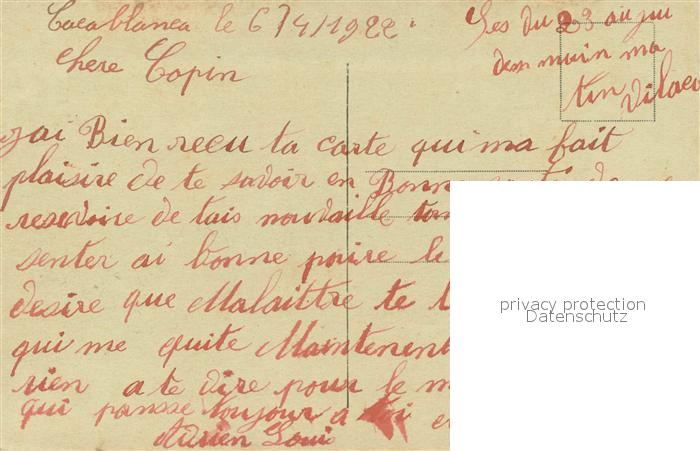 Casablanca le 6/4/1922.
Ses du 23 au jui
chere Copin
dem muin ma
tin Vilac
jai Bien recu ta carte qui ma fait
plaisire de te savoir en Bonne
resevoire de tais nouvaille
senter ai bonne poure le
desire que Malaittre te
qui me quite Maintenent
rien a te dire pour le m
qui pansse toujour a toi e
Adrien Loui
privacy protection
Datenschutz